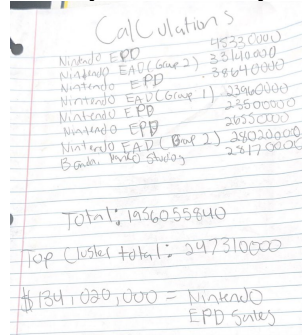 Calculations
Nintendo EPD 4533 0000
Nintendo EAD (Group 2) 33140000
Nintendo EPD 38640000
Nintendo EAD (Group 1) 23960000
Nintendo EPD 23500000
Nintendo EPD 26550000
Nintendo EAD (Group 2) 28020000
Bandai Namco Studios 28170000
Total: 1956055840
Top Cluster total: 247310000
$134,020,000 = Nintendo
EPD Sales